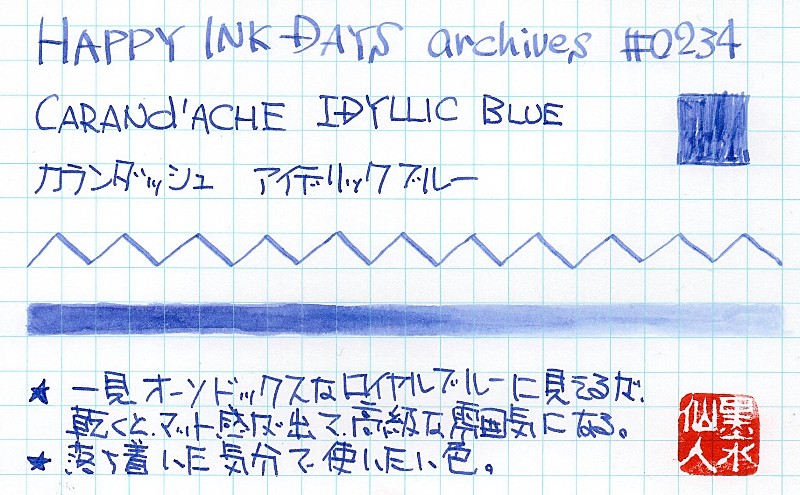 HAPPY INK DAYS archives #0234
CARANd'ACHE IDYLLIC BLUE
カランダッシュ アイデリックブルー
★ 一見オーソドックスなロイヤルブルーに見えるが、
乾くと、マット感が出て、高級な雰囲気になる。
★ 落ち着いた気分で使いたい色。
墨水
仙人